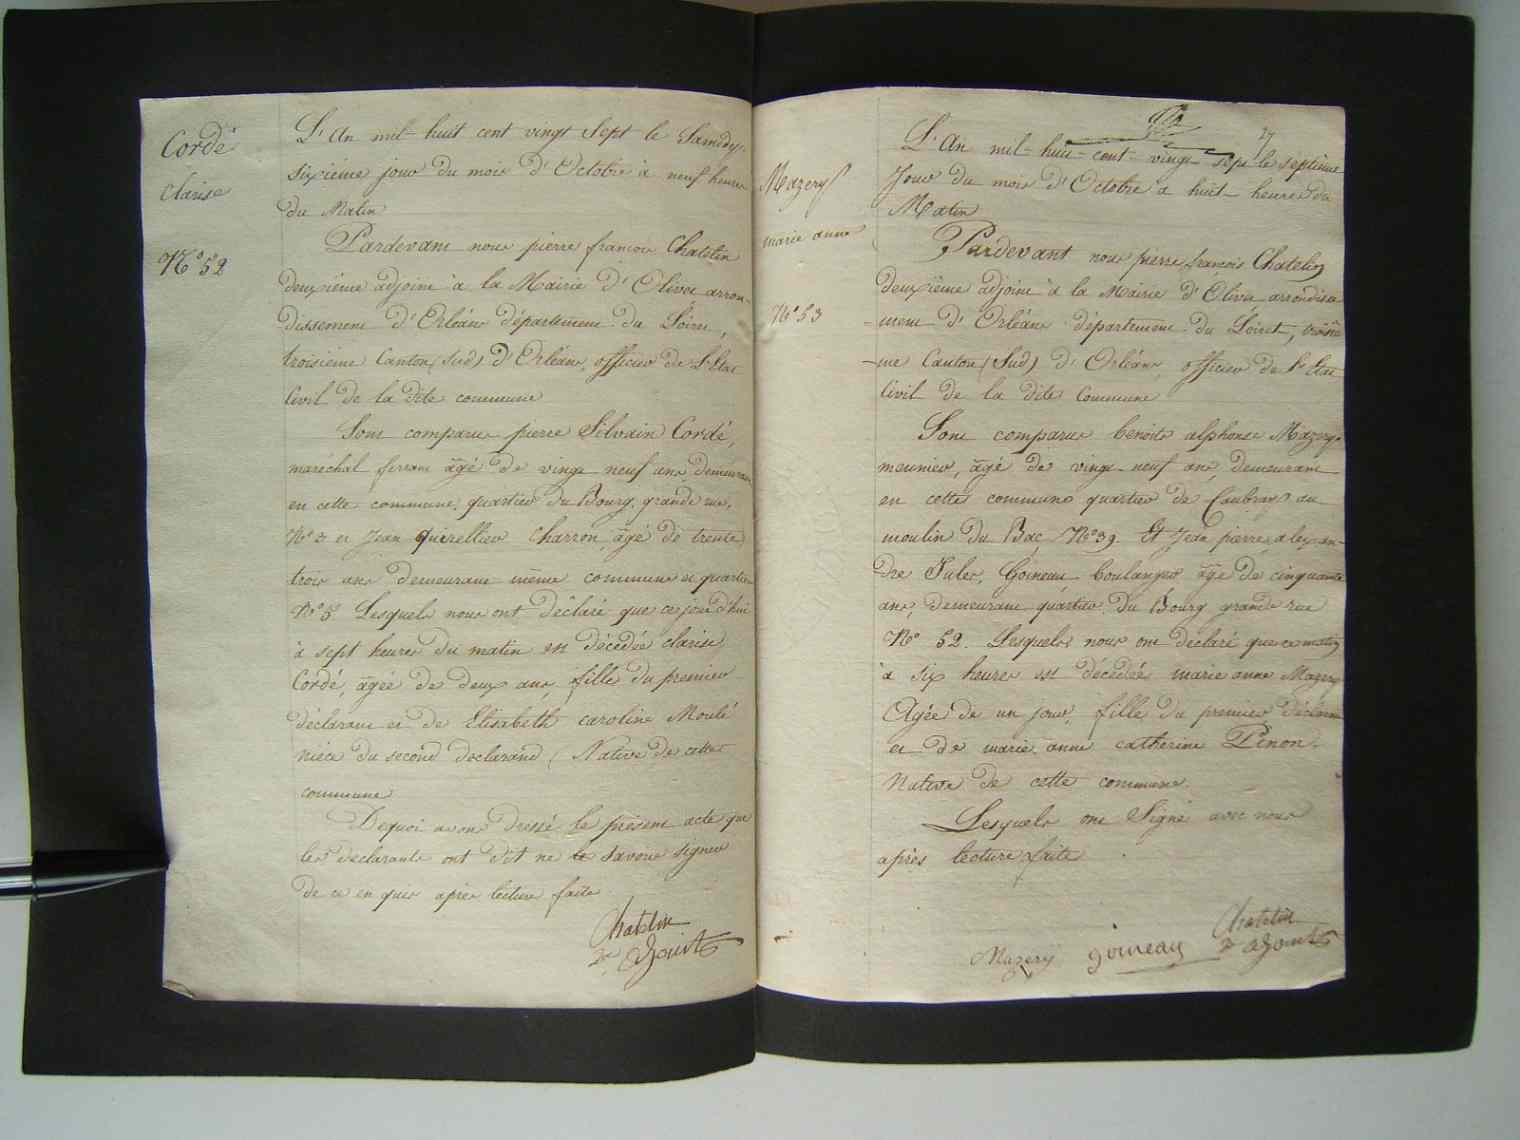 Cordé
Clarise
N° 52
L'An mil-huit cent vingt sept le Samedy
sixiéme jour du mois d'Octobre à neuf heures
du Matin
Pardevant nous pierre françois Chatelin
deuxiéme adjoint à la Mairie d'Olivet arron-
dissement d'Orléans département du Loiret,
troisiéme Canton (Sud) d'Orléans, officier de L'Etat
Civil de la dite commune
Sont comparus pierre Silvain Cordé,
maréchal ferrant âgé de vingt neuf ans demeurant
en cette commune, quartier du Bourg, grande rue,
N° 3 et Jean Charron, âgé de trente
trois ans demeurant même commune et quartier
N° 5 Lesquels nous ont déclaré que ce jourd'hui
à sept heures du matin est décédée clarise
Cordé, âgée de deux ans, fille du premier
déclarant et de Elisabeth caroline Moulé
niéce du second declarant (Native de cette
commune
Dequoi avons dressé le présent acte que
les declarants ont dit ne le savoir signer
de ce enquis après lecture faite
Chatelin
2e adjoint
27
Mazery
marie anne
N° 53
L'An mil-huit-cent-vingt-sept le septiéme
Jour du mois d'Octobre à huit-heures du
Matin
Pardevant nous pierre françois Chatelin
deuxiéme adjoint à la Mairie d'Olivet arrondisse
-ment d'Orléans département du Loiret, troisié
-me Canton (Sud) d'Orléans, officier de l'Etat
Civil de la dite Commune
Sont comparus benoits alphonse Mazery
meunier, âgé de vingt-neuf ans, demeurant
en cette commune quartier de Caubray au
moulin du Bac, N° 39. Et Jean pierre alexan-
dre Jules, Goineau boulanger âgé de cinquante
ans, demeurant quartier du Bourg grande rue
N° 52. Lesquels nous ont declaré que ce matin
à six heures est décédée marie anne Mazery
Agée de un jour, fille du premier déclarant
et de marie anne catherine Pinon.
Native de cette commune.
Lesquels ont Signé avec nous
après lecture faite.
Mazery goineau Chatelin
2e adjoint